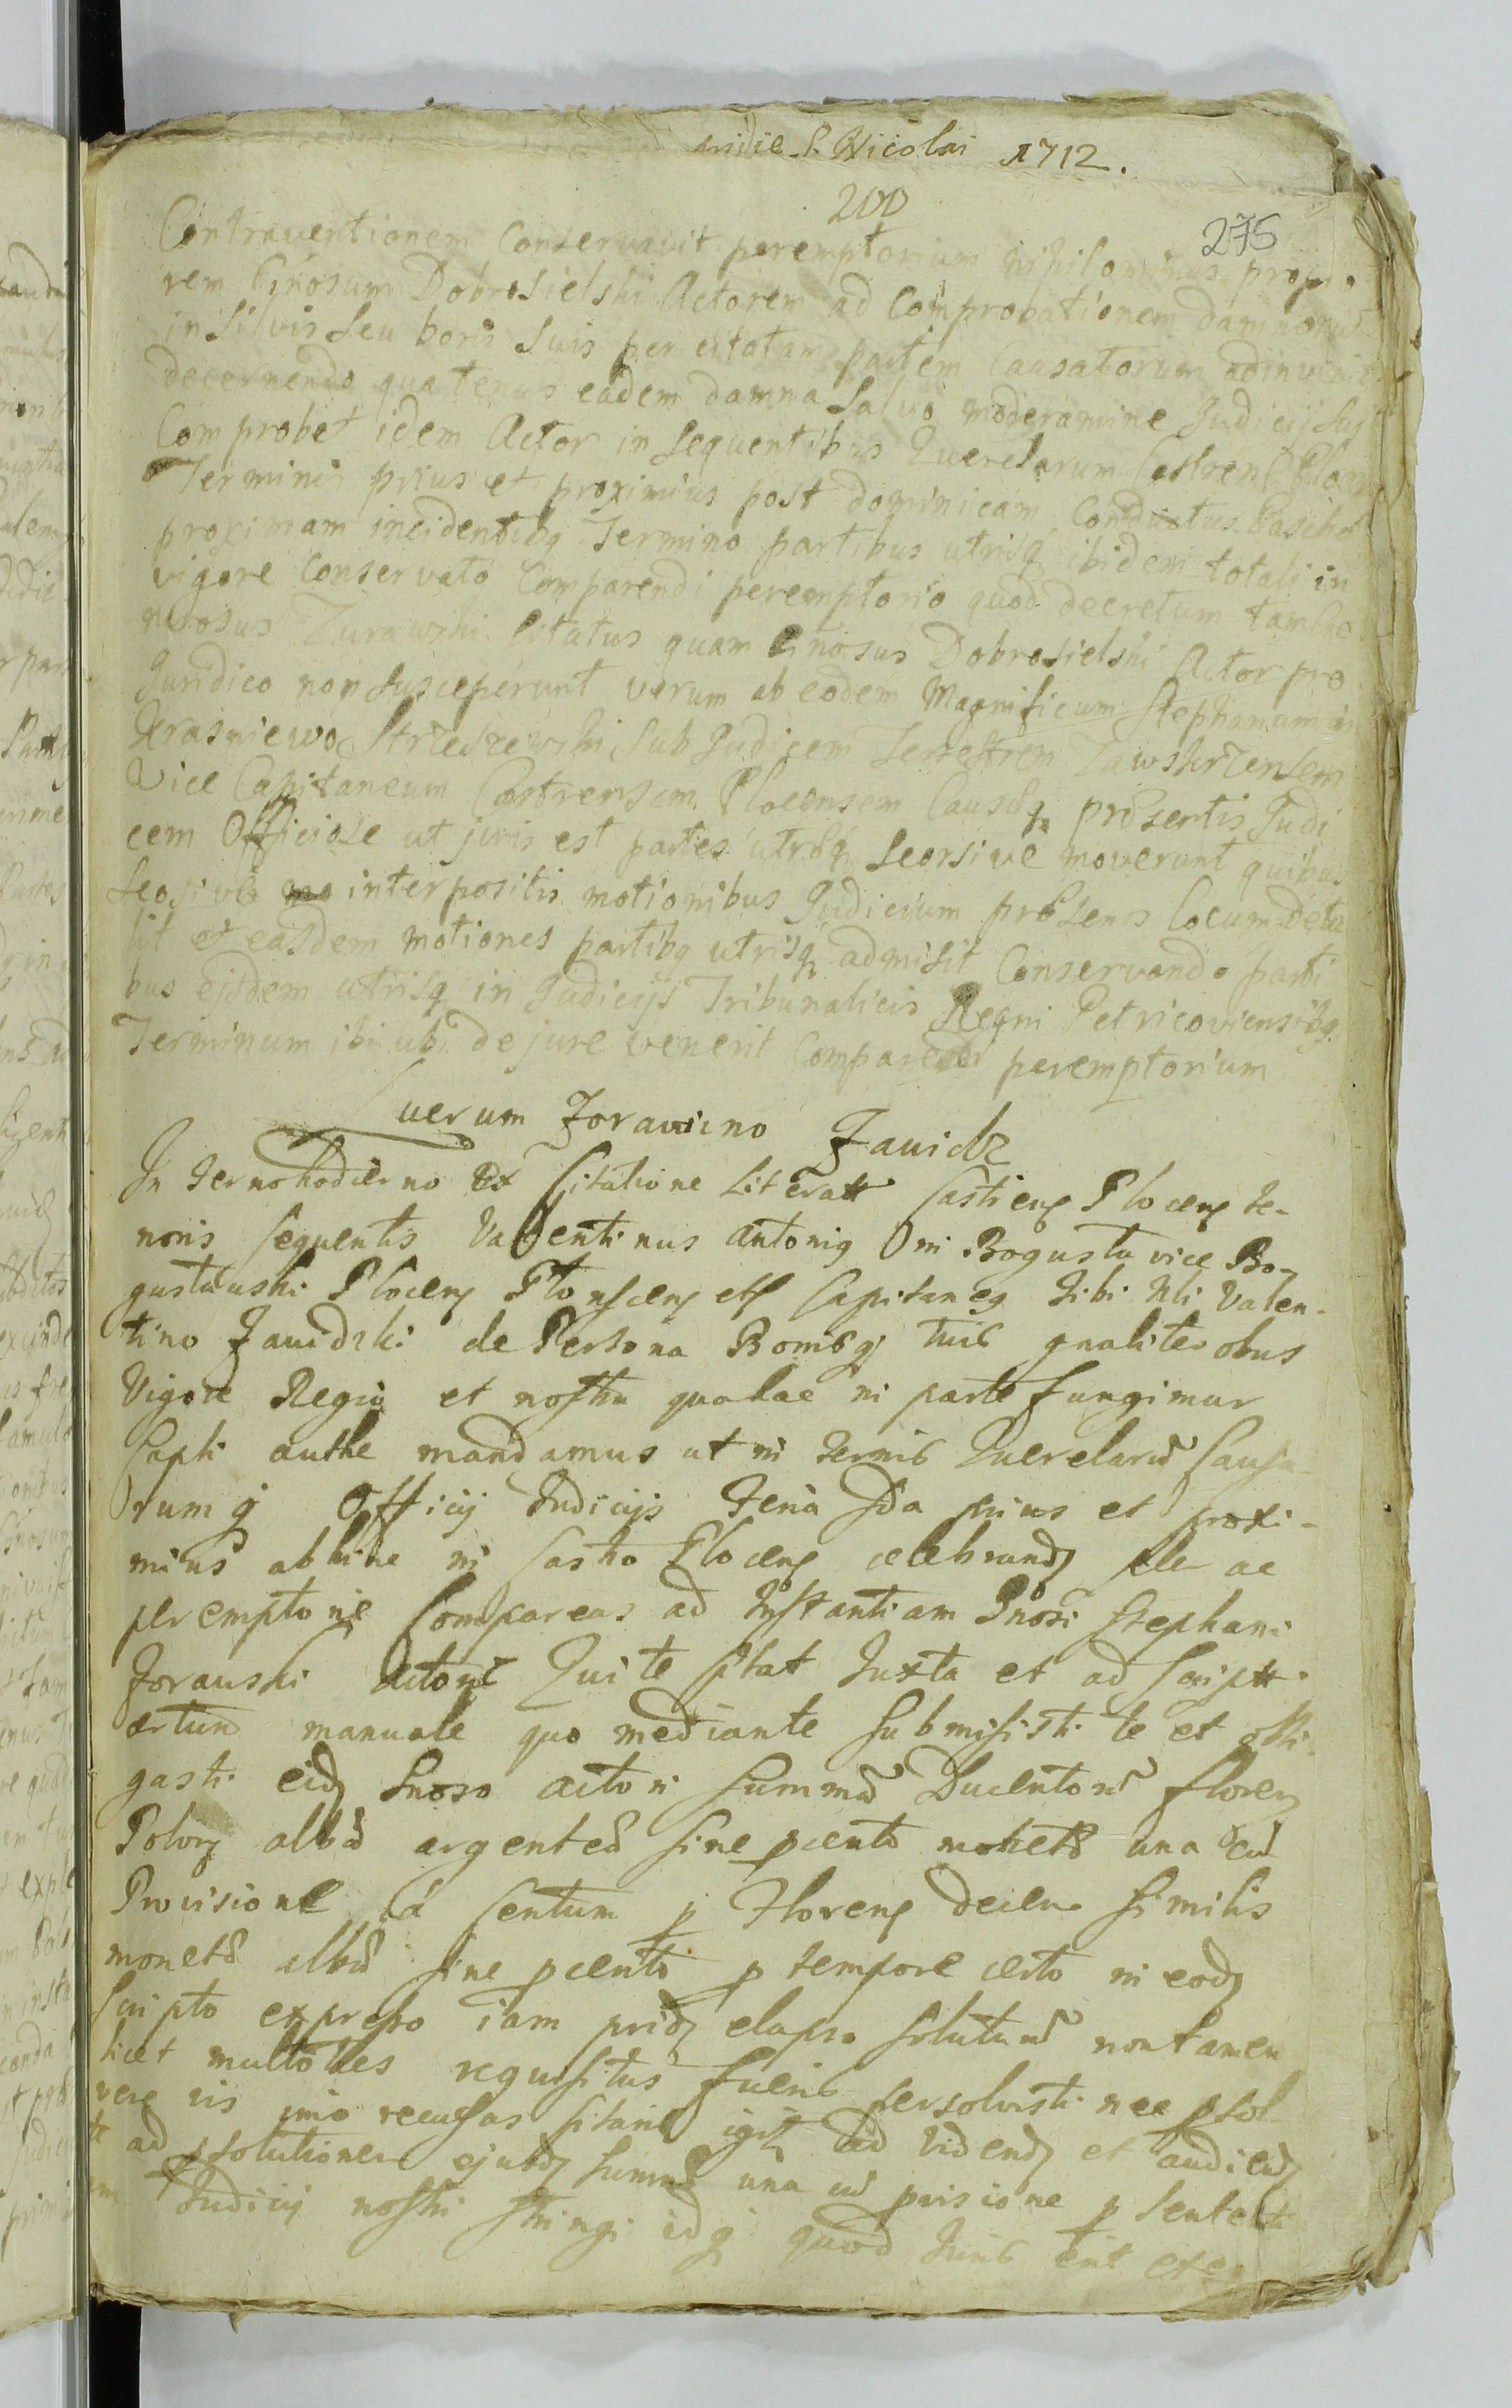 pridie S. Nicolai 1712.
200
275
Contraventionem Conservavit peremptorium nihilominus propio
rem Gnosum Dobrosielski Actorem ad Comprobationem damnorū
in Silvis Seu boris Suis per citatam partem Causatorum adinvenit
decernendo quatenus eadem damna Salvo moderamine Judicij
Comprobet idem Actor in Sequentibus Querelarum Castren Plocen
Terminis prius et proximius post dominicam Conductus Pascha
proximam incidentibq Termino partibus utrisq ibidem totali in
vigore Conservato Comparendi peremptorio quod decretum tam Ge
nerosus Zurawski Citatus quam Gnosus Dobrosielski Actor pro
Juridico non Susceperunt verum ab eodem Magnificum Stephanum in
Krasniewo Strzeszewski Sub Judicem Terrestrem Zawskrzensem
Vice Capitaneum Castrensem Plocensem Causæq præsentis Judi
cem Officiose ut juris est partes utræq Seorsive moverunt quibus
Seosive interpositis motionibus Judicium præsens Locum detu
lit et easdem motiones partibq utrisq admisit Conservando parti
bus ejsdem utrisq in Judicijs Tribunalicis Regni Petricoviensibq
Terminum ibi ubi de jure venerit Comparendi peremptorium
uerum Zorawino Zauidz
In termo hodierno Ex Citatione Literali Castrens Plocens te-
noris sequentis Valentinus Antonig in Bogusta vice Bo-
gustauski Plocens Plonscens ets Capitaneg Tibi Nli Valen-
tino Zauidzki de Persona Bonisq tuis gnaliter obus
Vigore Regia et nostra qua hac in parte fungimur
Capli authe mandamus ut in termis Querelarū Causa-
rumq Officij Judicijs feria sda prius et proxi-
mius abhinc in Castro Plocens celebrandis ple ac
peremptorie Compareas ad Instantiam Gnosi Stephani
Zorauski Actoris Qui te citat Juxta et ad Script
certum manuale quo mediante submisisti te et obli-
gasti eidz Gnoso actori summā Ducentorū floren
Polon albā argenteā sine pcento monetæ una cū
Provisione á Centum p Florens decem similis
monetæ albæ sine pcento p tempore certo in eodz
scripto expresso iam pridz elapso soluturū non tamen
licet multoties requisitus fueris persolvisti nec psol
vere vis imo recusas Citaris igitr ad Videndz et audiendz
te ad psolutionem ejusdz summæ una cū pvisione p Senten
Judicij nostri stringi idq quod Juris erit